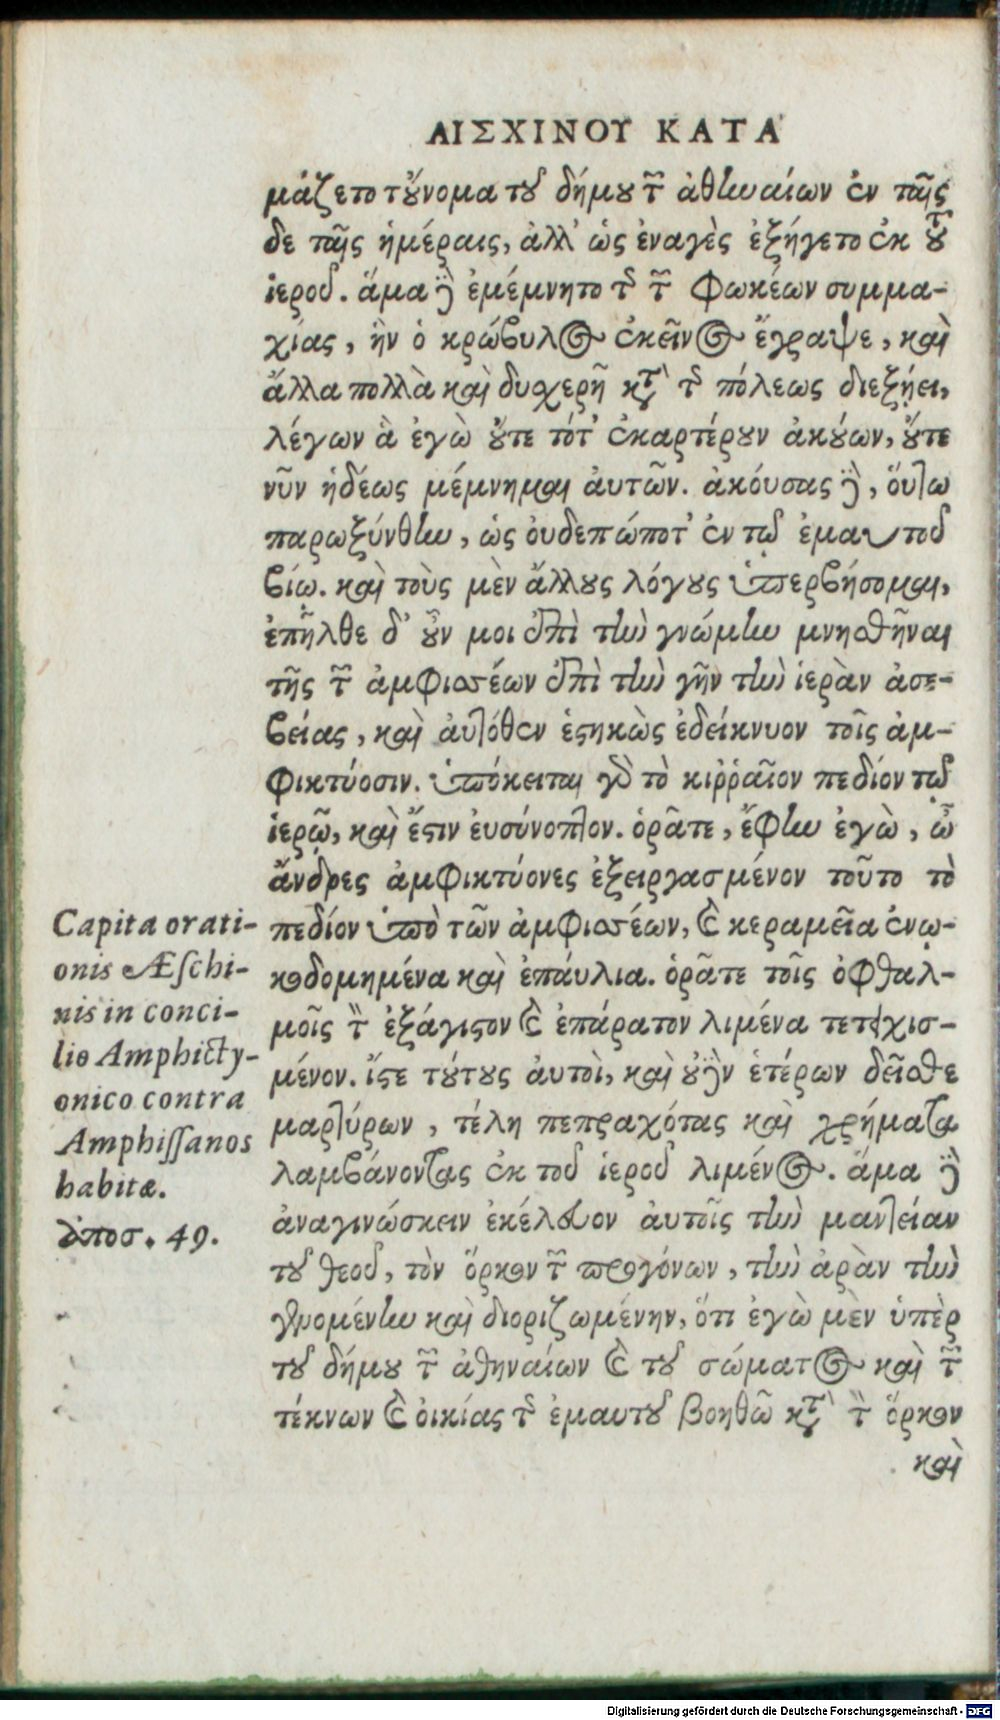 ΑΙΣΧΙΝΟΥ ΚΑΤΑ
μάζετο τοὔνομα τοῦ δήμου τῶν ἀθηναίων ἐν ταῖς
δε ταῖς ἡμέραις, ἀλλ' ὡς ἐναγὲς ἐξήγετο ἐκ τοῦ
ἱεροῦ. ἅμα δὲ ἐμέμνητο τῆς τῶν Φωκέων συμμα-
χίας, ἣν ὁ κρώβυλος ἐκεῖνος ἔγραψε, καὶ
ἄλλα πολλὰ καὶ δυχερῆ κατὰ τῆς πόλεως διεξῄει,
λέγων ἃ ἐγὼ οὔτε τότ' ἐκαρτέρουν ἀκούων, οὔτε
νῦν ἡδέως μέμνημαι ἀυτῶν. ἀκόυσας δὲ, ὅυτω
παρωξύνθην, ὡς ὀυδεπώποτ' ἐν τῷ ἐμαυτοῦ
βίῳ. καὶ τοὺς μὲν ἄλλους λόγους ὑπερβήσομαι,
ἐπῆλθε δ' οὖν μοι ἐπὶ τὴν γνώμην μνησθῆναι
τῆς τῶν ἀμφισσέων ἐπὶ τὴν γῆν τὴν ἱερὰν ἀσε-
βείας, καὶ ἀυτόθεν ἑστηκὼς ἐδείκνυον τοῖς ἀμ-
φικτύοσιν. ὑπόκειται γὰρ τὸ κιῤῥαῖον πεδίον τῷ
ἱερῷ, καὶ ἔστιν ἐυσύνοπτον. ὁρᾶτε, ἔφην ἐγὼ, ὦ
ἄνδρες ἀμφικτύονες ἐξειργασμένον τοῦτο τὸ
πεδίον ὑπὸ τῶν ἀμφισσέων, καὶ κεραμεῖα ἐνῳ-
κοδομημένα καὶ ἐπάυλια. ὁρᾶτε τοῖς ὀφθαλ-
μοῖς τὸν ἐξάγιστον καὶ ἐπάρατον λιμένα τετειχισ-
μένον. ἴστε τούτους ἀυτοὶ, καὶ οὐδὲν ἑτέρων δεῖσθε
μαρτύρων, τέλη πεπραχότας καὶ χρήματα
λαμβάνοντας ἐκ τοῦ ἱεροῦ λιμένος. ἅμα δὲ
ἀναγινώσκειν ἐκέλευον ἀυτοῖς τὴν μαντείαν
τοῦ θεοῦ, τὸν ὅρκον τῶν προγόνων, τὴν ἀρὰν τὴν
γενομένην καὶ διοριζωμένην, ὅτι ἐγὼ μὲν ὑπὲρ
τοῦ δήμου τῶν ἀθηναίων καὶ τοῦ σώματος καὶ τῶν
τέκνων καὶ ὀικίας τῆς ἐμαυτοῦ βοηθῶ κατὰ τὸν ὅρκον
καὶ
Capita orati-
onis Æschi-
nis in conci-
lio Amphicty-
onico contra
Amphissanos
habitæ.
ἀποσ. 49.
Digitalisierung gefördert durch die Deutsche Forschungsgemeinschaft - DFG